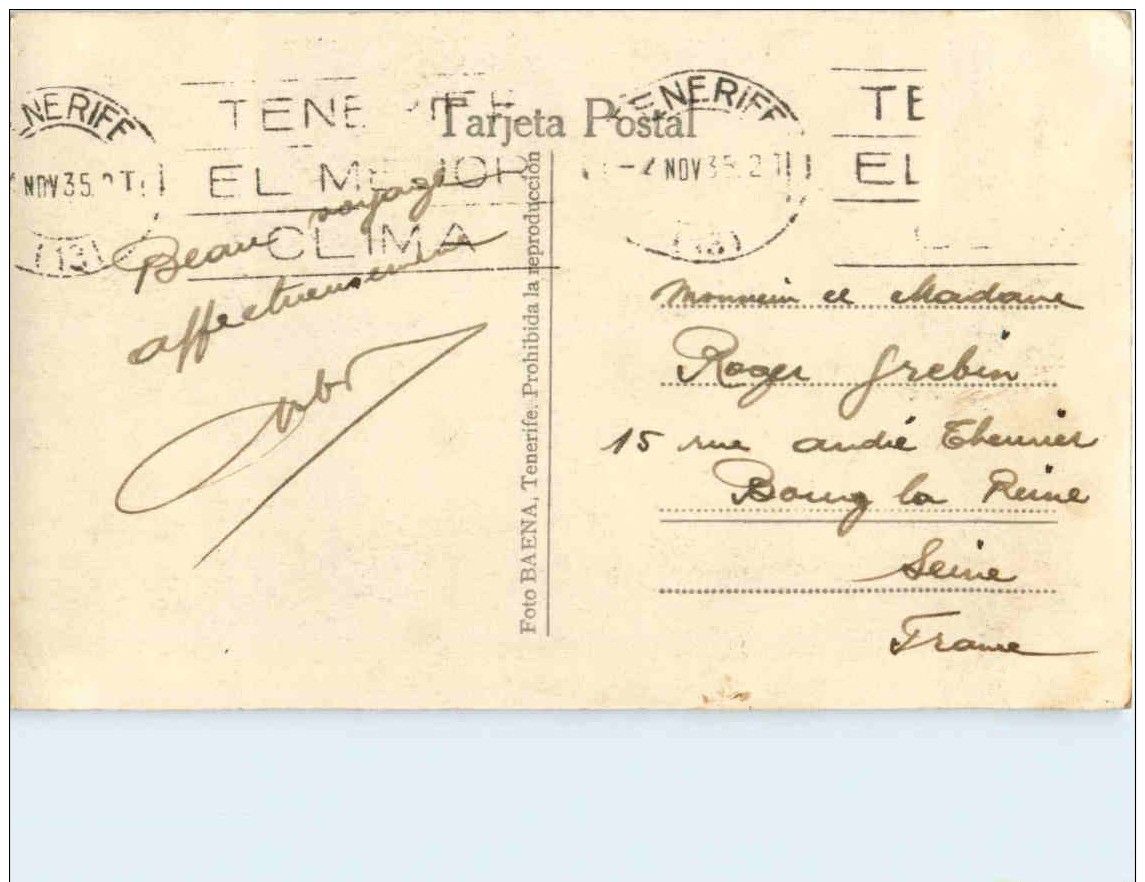 Tarjeta Postal
TENERIFE
EL MEJOR
CLIMA
NERIFE
NOV 35
(13)
ENERIFE
-4 NOV 35 2 T
(13)
TE
EL
Beau voyage
affectueusement
Monsieur et Madame
Roger Grebin
15 rue andré Theuriet
Bourg la Reine
Seine
France
Foto BAENA, Tenerife. Prohibida la reproducción